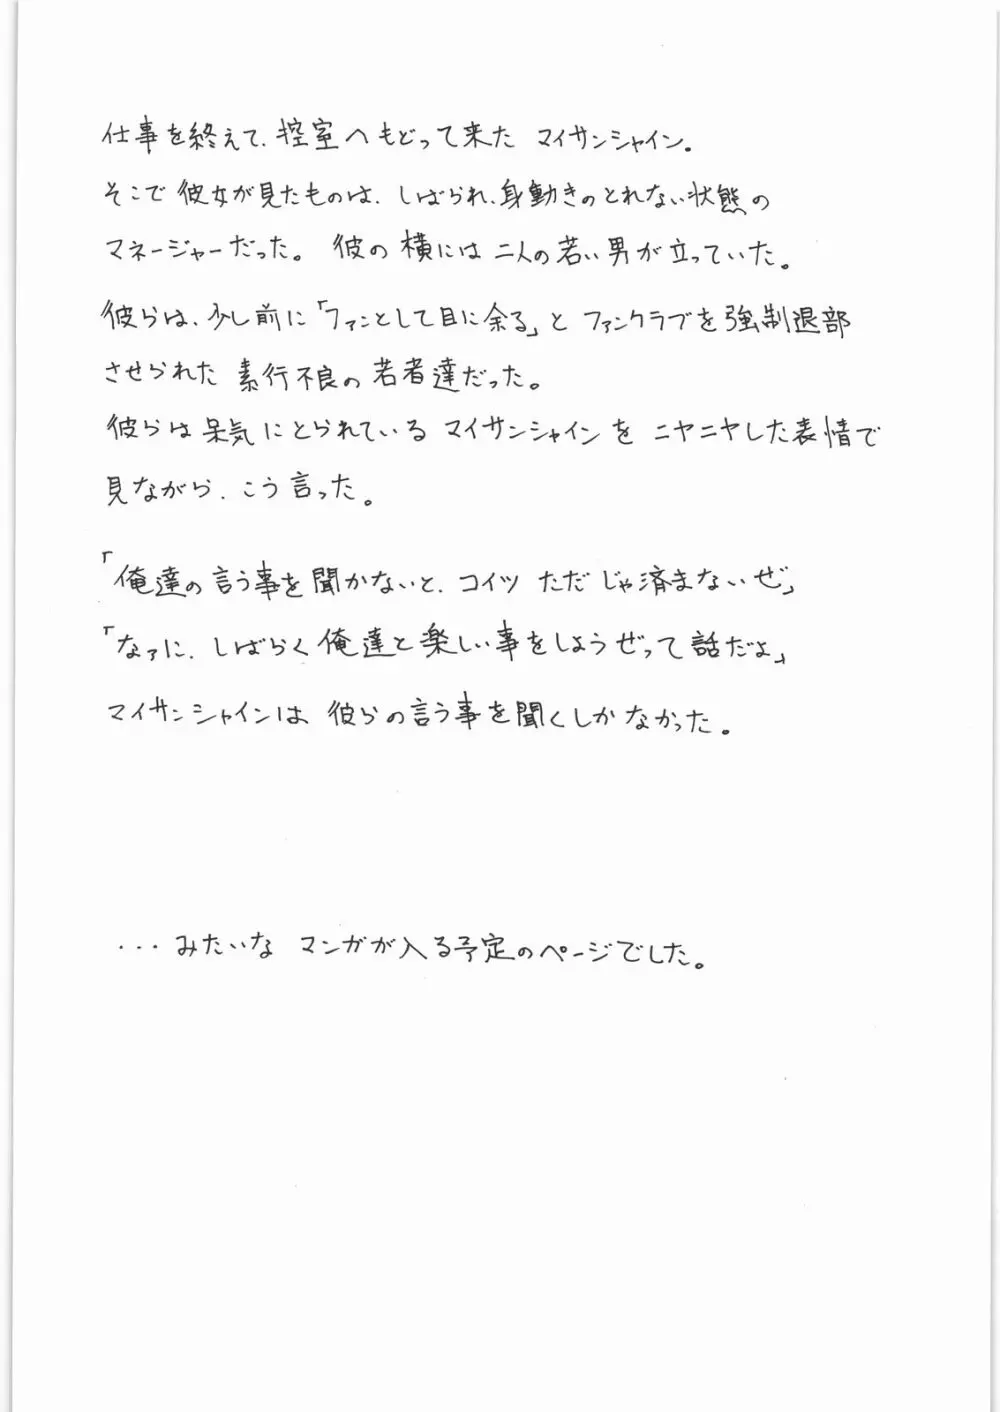 仕事を終えて、控室へもどって来た マイサンシャイン。
そこで 彼女が見たものは、しばられ、身動きのとれない状態の
マネージャーだった。 彼の横には二人の若い男が立っていた。
彼らは、少し前に「ファンとして目に余る」と ファンクラブを強制退部
させられた 素行不良の若者達だった。
彼らは呆気にとられている マイサンシャインを ニヤニヤした表情で
見ながら、こう言った。
「俺達の言う事を聞かないと、コイツ ただじゃ済まないぜ」
「なァに、しばらく俺達と楽しい事をしようぜって話だよ」
マイサンシャインは 彼らの言う事を聞くしかなかった。
・・・みたいな マンガが入る予定のページでした。